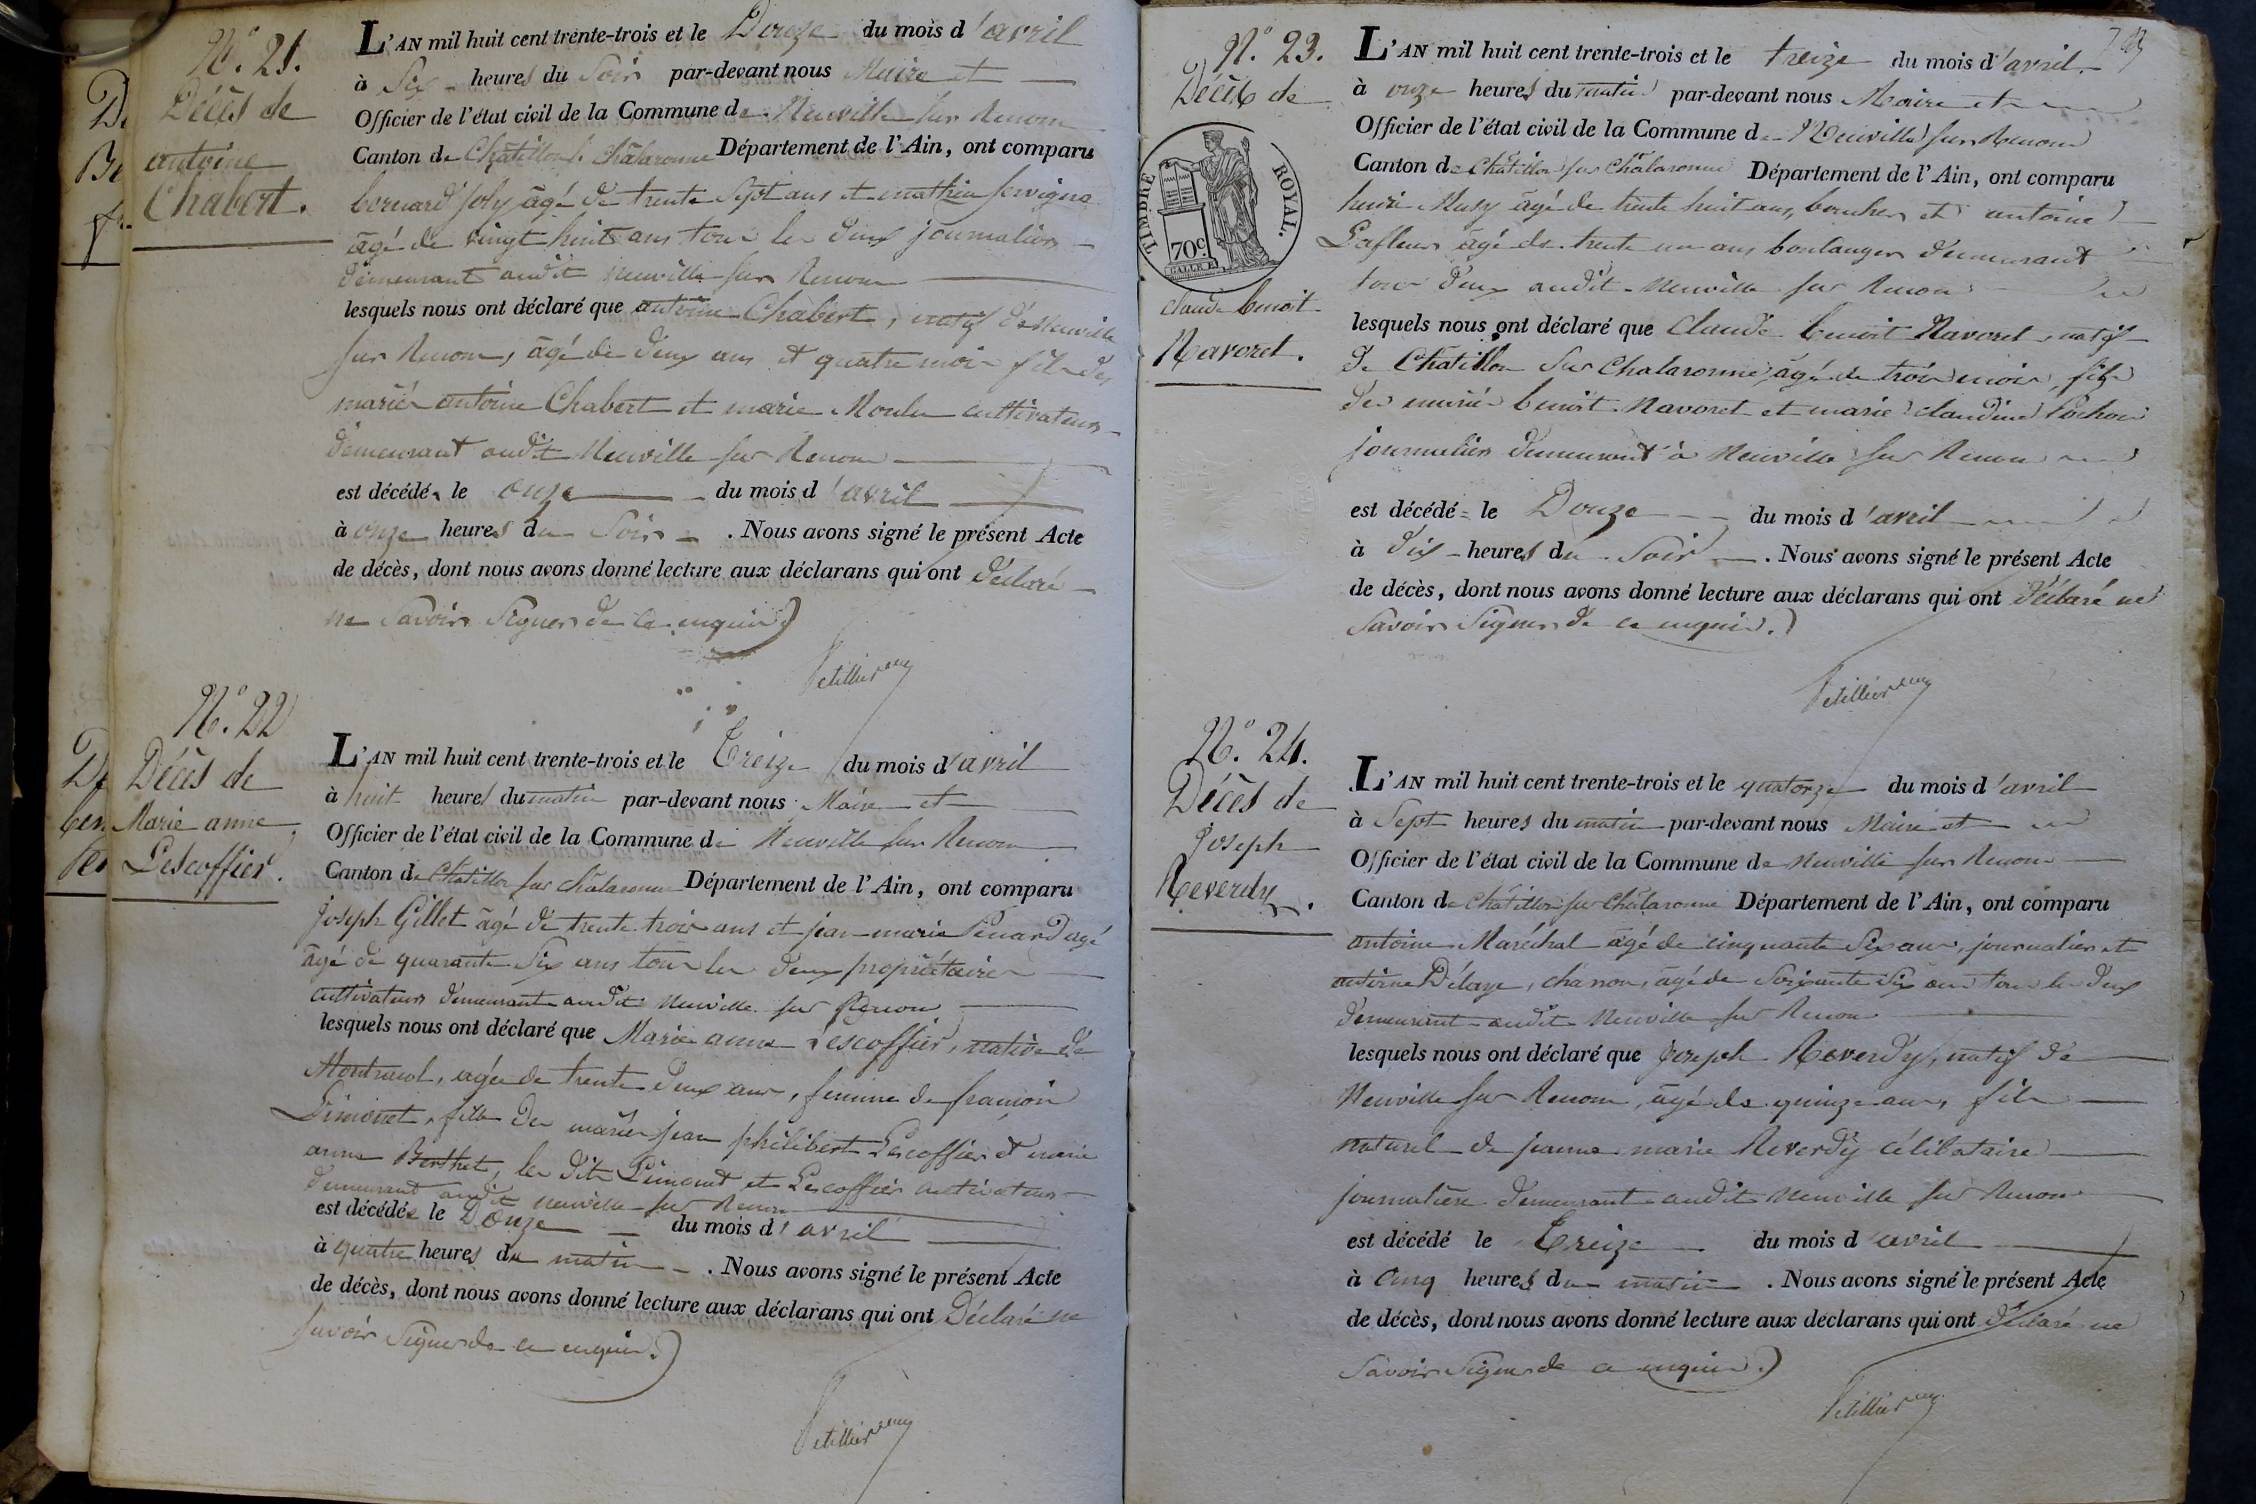 N.° 21.
Décès de
antoine
Chabert.
L'AN mil huit cent trente-trois et le Douze du mois d'avril
à Six heures du Soir par-devant nous Maire et
Officier de l'état civil de la Commune de Neuville sur Renom
Canton de Châtillon s. Châlaronne Département de l'Ain, ont comparu
bernard joly âgé de trente Sept ans et mathieu servignat
âgé de vingt huit ans tous les deux journaliers
demeurant audit neuville sur Renom
lesquels nous ont déclaré que antoine Chabert, natif de Neuville
sur Renom, âgé de deux ans et quatre mois fils des
mariés antoine Chabert et marie Moulin cultivateurs
demeurant audit Neuville sur Renom
est décédé le onze du mois d'avril
à onze heures du Soir . Nous avons signé le présent Acte
de décès, dont nous avons donné lecture aux déclarans qui ont déclaré
ne Savoir Signer de ce enquis.
Petillier
N.° 22
Décès de
Marie anne
Lescoffier.
L'AN mil huit cent trente-trois et le Treize du mois d'avril
à huit heures du matin par-devant nous Maire et
Officier de l'état civil de la Commune de Neuville sur Renom
Canton de Châtillon sur châlaronne Département de l'Ain, ont comparu
joseph Gillet âgé de trente trois ans et jean marie Penard agé
âgé de quarante Six ans tous les deux propriétaires
cultivateurs demeurant audit Neuville sur Renom
lesquels nous ont déclaré que Marie anne Lescoffier, native de
Montracol, agée de trente deux ans, femme de françois
Limonet, fille des mariés jean philibert Lescoffier et marie
anne Berthet, les dits Limonet et Lescoffier cultivateurs
demeurant audit neuville sur Renom
est décédée le Douze du mois d'avril
à quatre heures du matin . Nous avons signé le présent Acte
de décès, dont nous avons donné lecture aux déclarans qui ont Déclaré ne
savoir Signer de ce enquis.
Petillier
N.° 23.
Décès de
TIMBRE ROYAL.
70 c.
claude benoit
Navoret.
L'AN mil huit cent trente-trois et le treize du mois d'avril
à onze heures du matin par-devant nous Maire et
Officier de l'état civil de la Commune de Neuville sur Renom
Canton de Châtillon sur Châlaronne Département de l'Ain, ont comparu
henri Musy âgé de trente huit ans, boucher et antoine
Lafleur âgé de trente un ans boulanger demeurant
tous deux audit Neuville sur Renom
lesquels nous ont déclaré que Claude benoit Navoret, natif
de Châtillon Sur Chalaronne âgé de trois mois, fils
des mariés benoit Navoret et marie claudine Pochon
journaliers demeurant à Neuville sur Renom
est décédé le Douze du mois d'avril
à dix heures du Soir . Nous avons signé le présent Acte
de décès, dont nous avons donné lecture aux déclarans qui ont déclaré ne
Savoir Signer de ce enquis.
Petillier
N.° 24.
Décès de
joseph
Reverdy.
L'AN mil huit cent trente-trois et le quatorze du mois d'avril
à Sept heures du matin par-devant nous Maire et
Officier de l'état civil de la Commune de Neuville sur Renom
Canton de Châtillon sur Châlaronne Département de l'Ain, ont comparu
antoine Maréchal âgé de cinquante Six ans, journalier et
antoine Délaye, âgé de Soixante Six ans tous les deux
demeurant audit Neuville sur Renom
lesquels nous ont déclaré que joseph Reverdy, natif de
Neuville sur Renom, âgé de quinze ans, fils
naturel de jeanne marie Reverdy célibataire
journalière demeurant audit Neuville sur Renom
est décédé le Treize du mois d'avril
à cinq heures du matin . Nous avons signé le présent Acte
de décès, dont nous avons donné lecture aux declarans qui ont déclaré ne
Savoir Signer de ce enquis.
Petillier